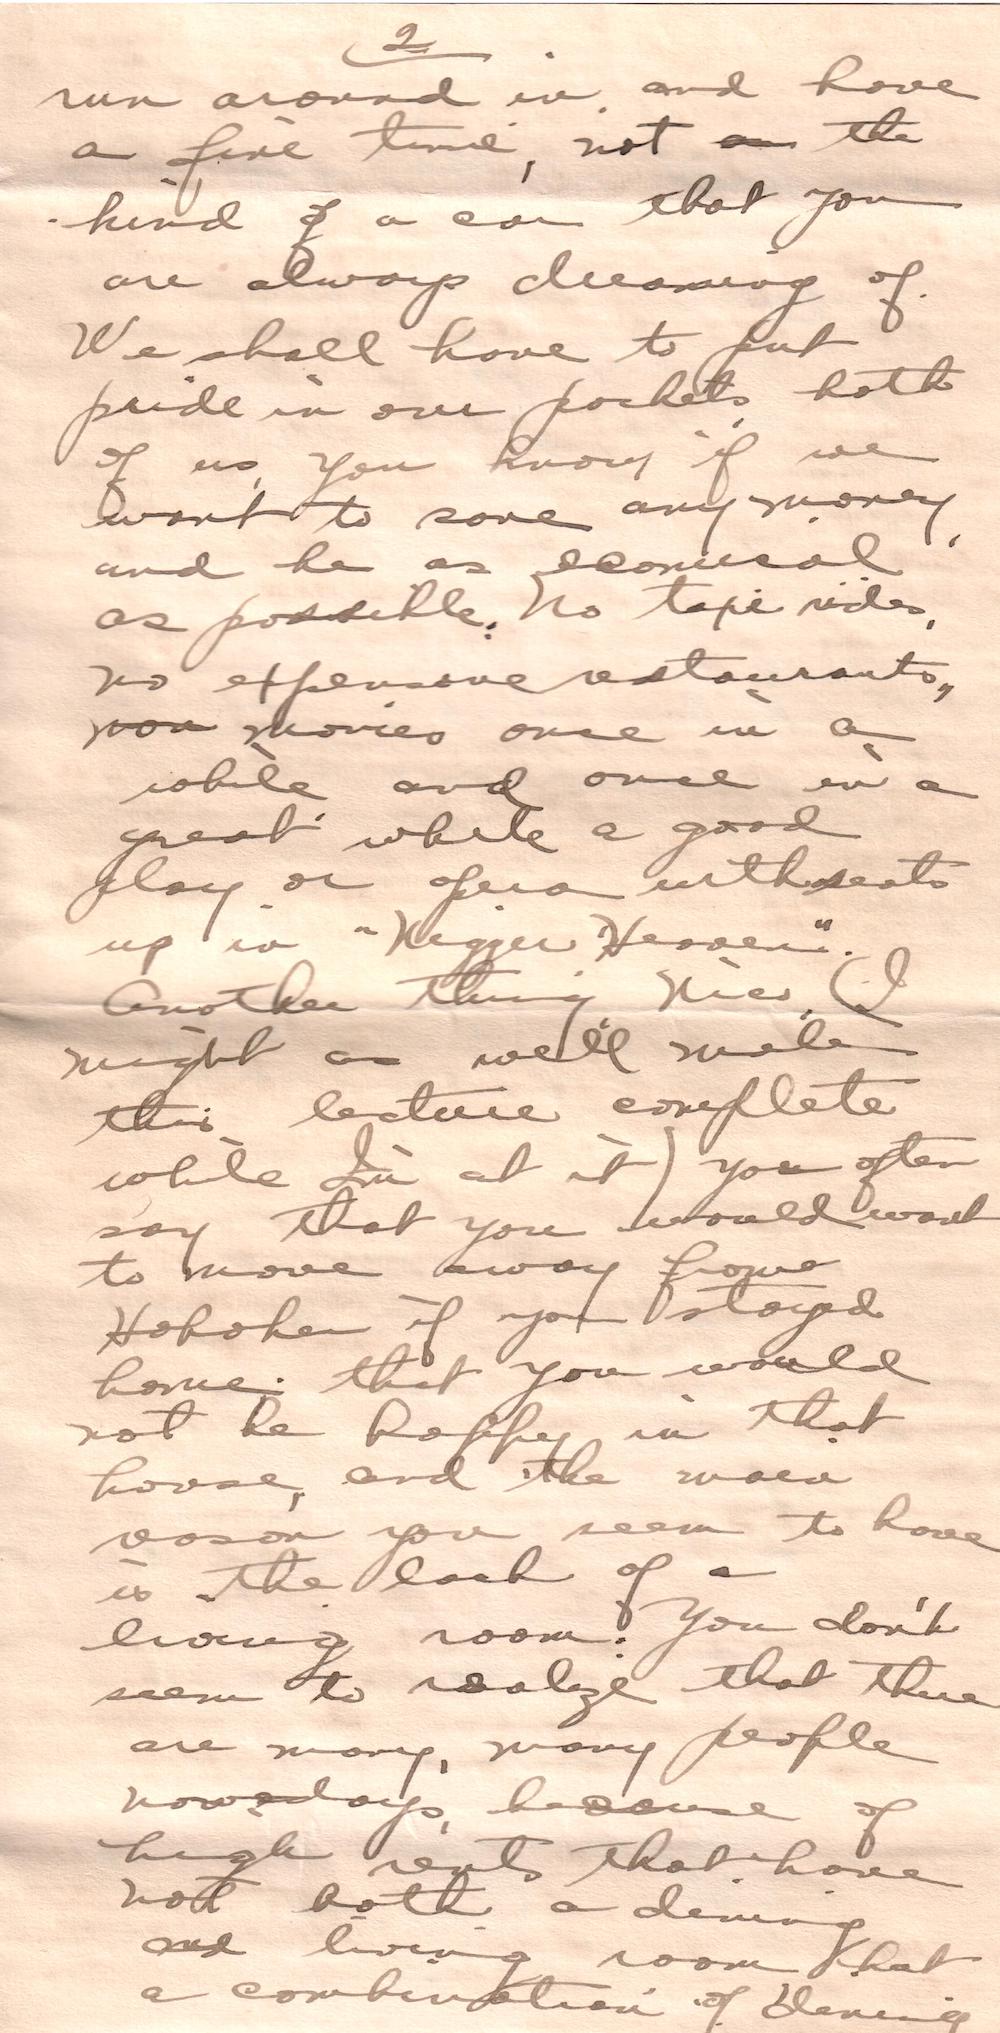 2
run around in, and have
a fine time, not the
kind of a car that you
are always dreaming of.
We shall have to put
pride in our pockets, both
of us, you know, if we
want to save any money,
and be as economical
as possible. No taxi rides,
no expensive restaurants,
movies once in a
while and once in a
great while a good
play or opera with seats
up in "Nigger Heaven".
Another thing Nico, (I
might as well make
this lecture complete
while I'm at it) you often
say that you would want
to move away from
Hoboken if you stayed
home. that you would
not be happy in that
house, and the main
reason you seem to have
is the lack of a
living room. You don't
seem to realize that there
are many, many people
nowadays, because of
high rents that have
not both a dining
and living room that
a combination of dining